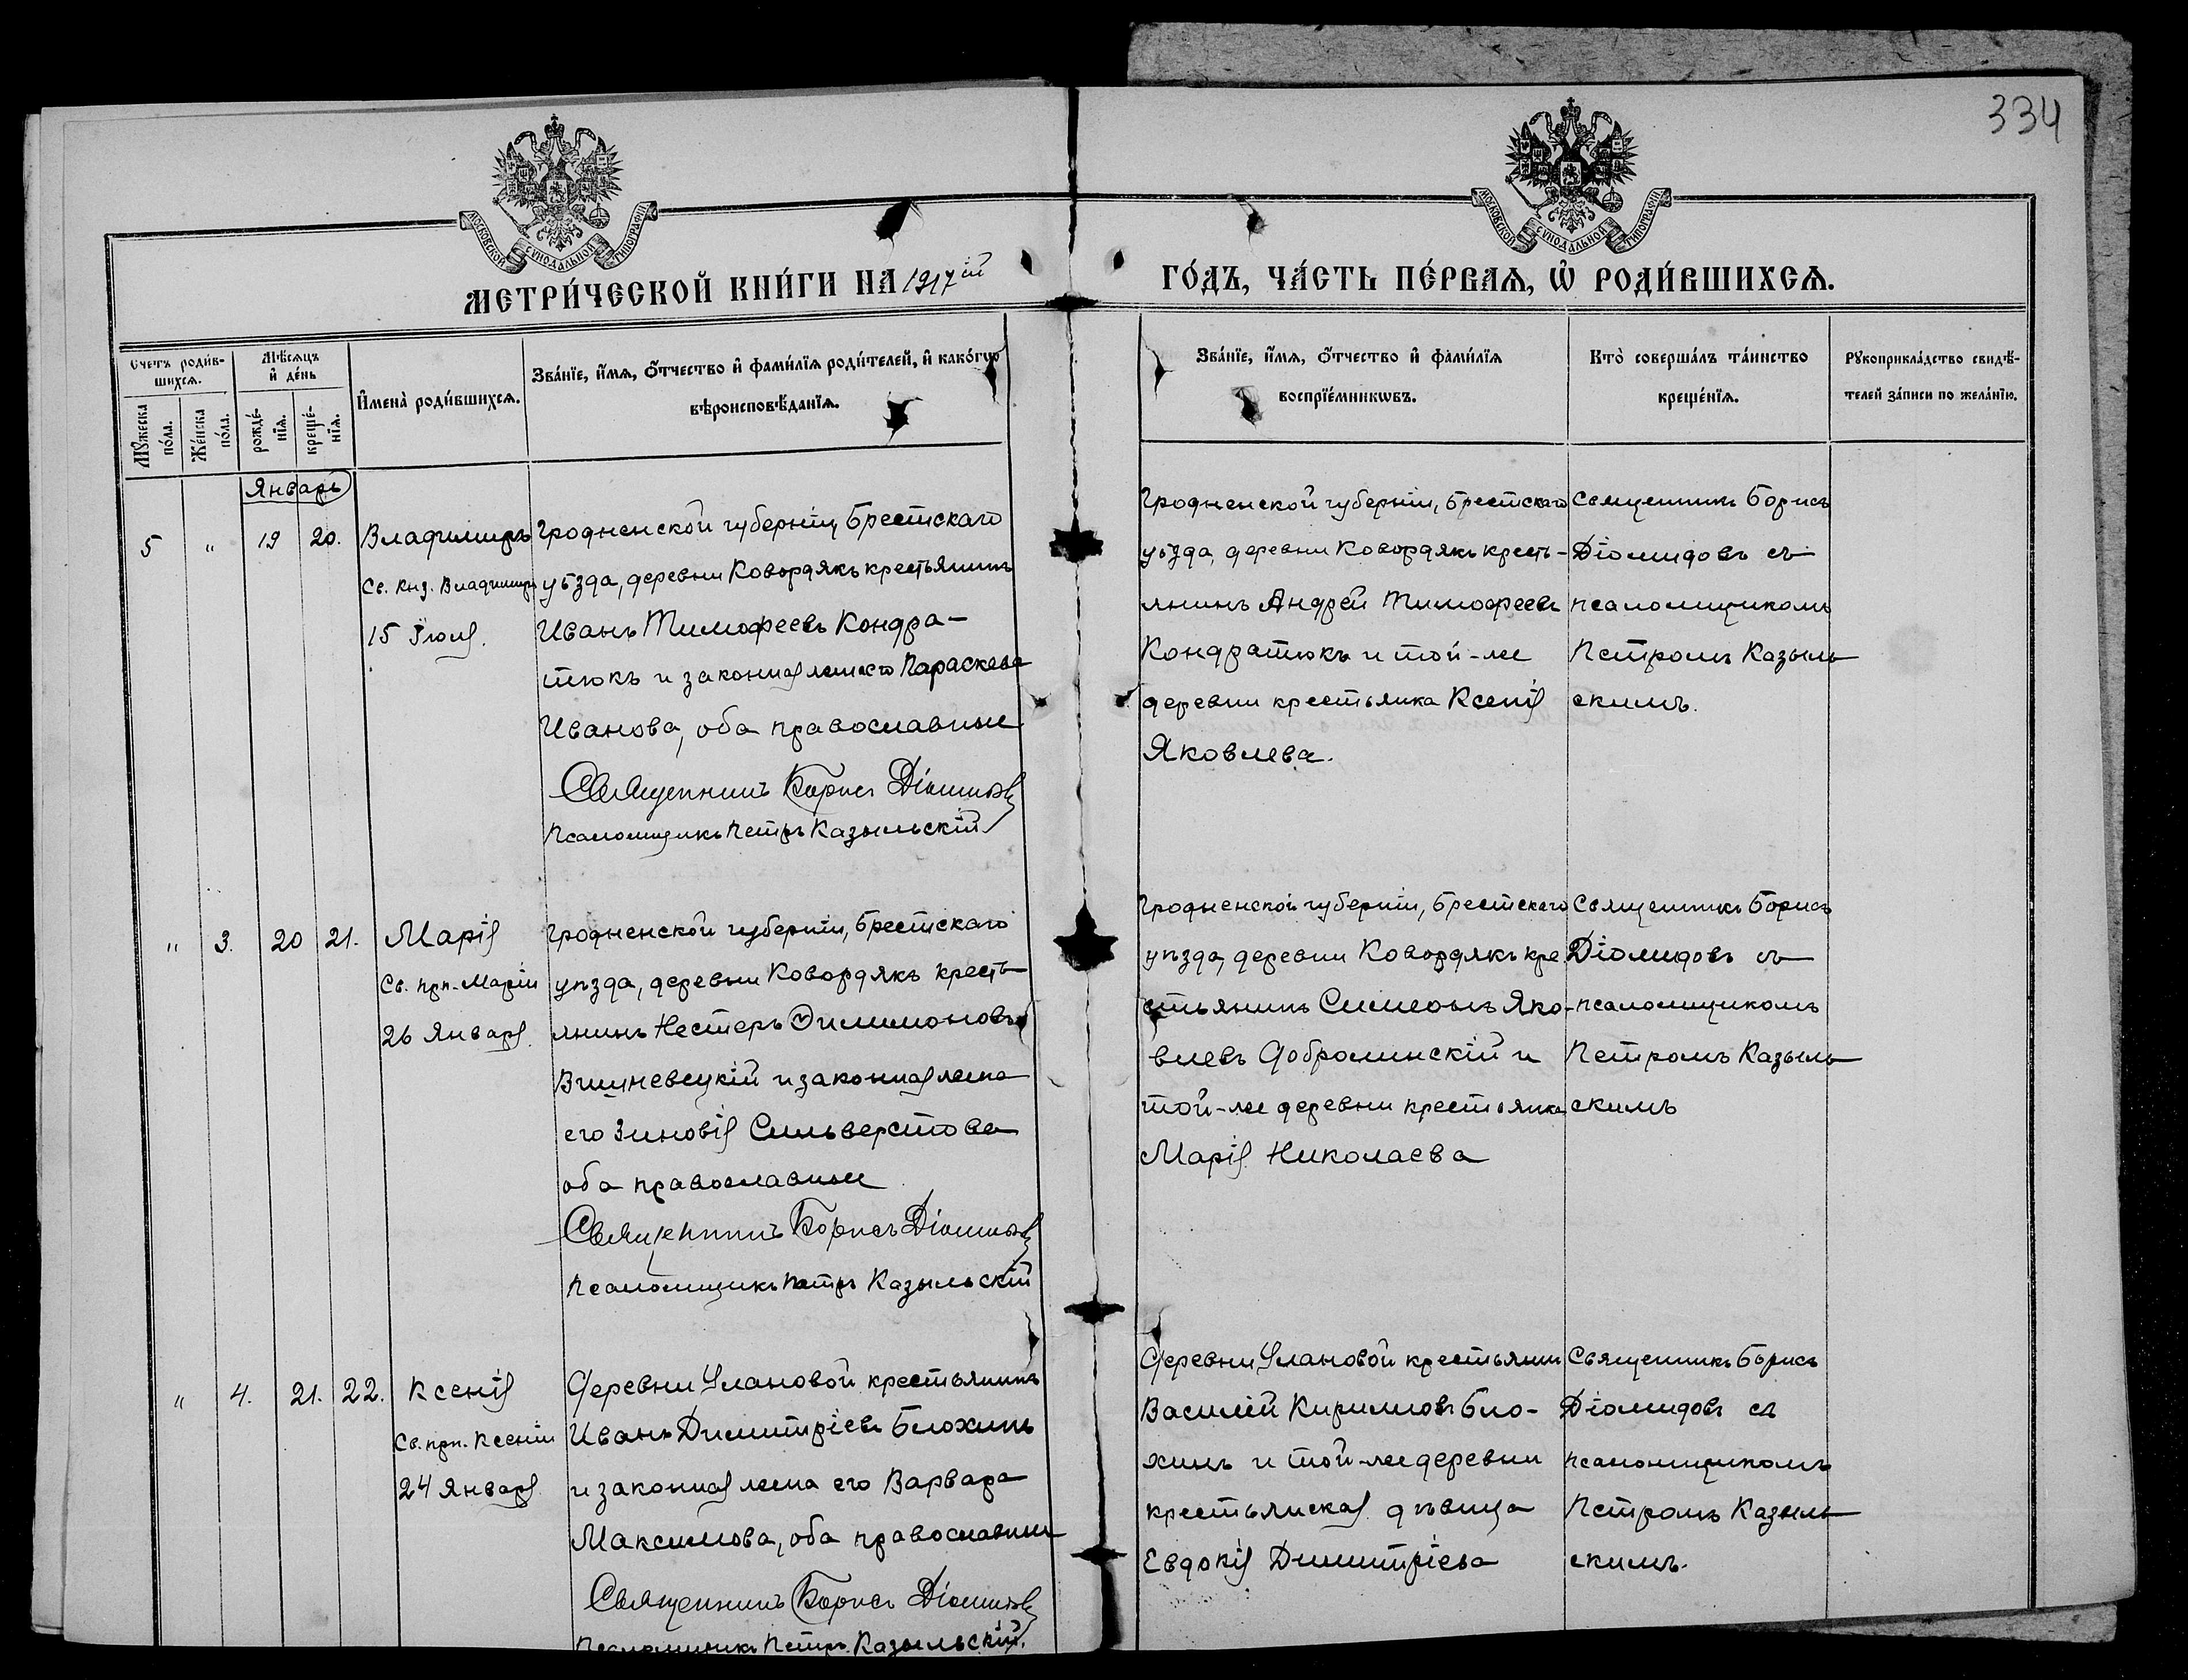 334
МОСКОВСКОЙ СУНОДАЛЬНОЙ ТИПОГРАФІИ
МОСКОВСКОЙ СУНОДАЛЬНОЙ ТИПОГРАФІИ
МЕТРИ́ЧЕСКОЙ КНИ́ГИ НА 1917ій
ГО́ДЪ, ЧА́СТЬ ПЕ́РВАѦ, Ѡ҆ РОДИ́ВШИХСѦ.
Счетъ роди́в-
шихсѧ.
Мѣ́сѧцъ
и҆ де́нь
И҆мена̀ роди́вшихсѧ.
Зва́нїе, и҆́мѧ, ѻ҆́тчество и҆ фами́лїѧ роди́телей, и҆ како́гѡ
вѣроисповѣ́данїѧ.
Мꙋ́жеска
по́ла.
Же́нска
по́ла.
рожде́-
нїѧ.
креще́-
нїѧ.
Зва́нїе, и҆́мѧ, ѻ҆́тчество и҆ фами́лїѧ
воспрїе́мникѡвъ.
Кто̀ соверша́лъ та́инство
креще́нїѧ.
Рꙋкоприкла́дство свидѣ́-
телей за́писи по жела́нїю.
Январь
5 " 19 20. Владимиръ
Св. Кнз. Владимира
15 Іюля.
Гродненской губерніи, Брестскаго
уѣзда, деревни Ковордякъ крестьянинъ
Иванъ Тимофеевъ Кондра-
тюкъ и законная жена его Параскева
Иванова, оба православные
Священникъ Борисъ Діомидовъ
Псаломщикъ Петръ Казыльскій
Гродненской губерніи, Брестскаго
уѣзда, деревни Ковордякъ кресть-
янинъ Андрей Тимофеевъ
Кондратюкъ и той-же
деревни крестьянка Ксенія
Яковлева.
Священникъ Борисъ
Діомидовъ съ
псаломщикомъ
Петромъ Казыль
скимъ.
" 3. 20 21. Марія
Св. прп. Маріи
26 Января.
Гродненской губерніи, Брестскаго
уѣзда, деревни Ковордякъ кресть
янинъ Нестеръ Филимоновъ
Вишневецкій и законная жена
его Зиновія Сильверстова
оба православные
Священникъ Борисъ Діомидовъ
Псаломщикъ Петръ Казыльскій
Гродненской губерніи, Брестскаго
уѣзда, деревни Ковордякъ кре
стьянинъ Симеонъ Яко-
влевъ Добролинскій и
той-же деревни крестьянка
Марія Николаева
Священникъ Борисъ
Діомидовъ съ
псаломщикомъ
Петромъ Казыль
скимъ
" 4. 21. 22. Ксенія
Св. прп. Ксеніи
24 Января.
Деревни Улановой крестьянинъ
Иванъ Димитріевъ Блохинъ
и законная жена его Варвара
Максимова, оба православные
Священникъ Борисъ Діомидовъ
Псаломщикъ Петръ Казыльскій.
Деревни Улановой крестьянин
Василій Кириловъ Бло-
хинъ и той-же деревни
крестьянская дѣвица
Евдокія Димитріева
Священникъ Борисъ
Діомидовъ съ
псаломщикомъ
Петромъ Казыль
скимъ.